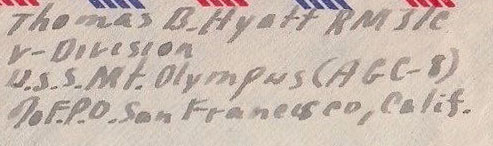 Thomas B. Hyatt RM3/c
V-Division
U.S.S. Mt. Olympus (AGC-8)
℅ F.P.O. San Francisco, Calif.